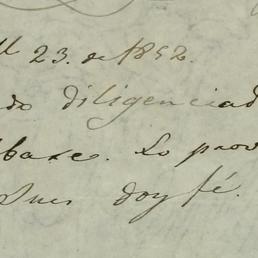 23. de 1852.
do diligenciad
base. Lo prov
Dues doy fé.